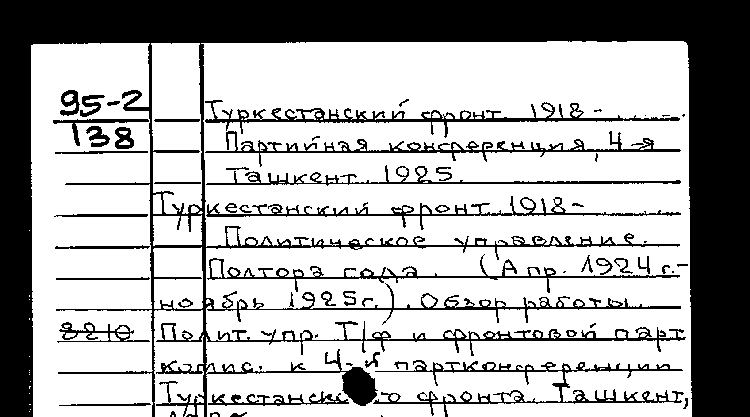 95-2
138
Туркестанский фронт. 1918-
Партийная конференция, 4-я
Ташкент. 1925.
Туркестанский фронт. 1918-
Политическое управление.
Полтора года. (Апр. 1924 г.-
ноябрь 1925г.). Обзор работы
8210 Полит. упр. Т/ф и фронтовой парт
комис. к 4-й партконференции
Туркестанско о фронта. Ташкент,